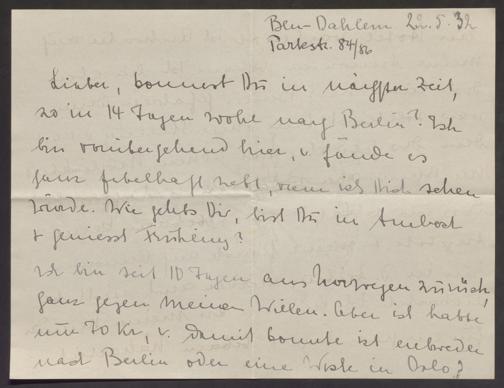 Bln-Dahlem 22.5.32
Parkstr. 84/86
Lieber, kommst Du in nächster Zeit,
so in 14 Tagen wohl nach Berlin? Ich
bin vorübergehend hier, u. fände es
ganz fabelhaft nett, wenn ich Dich sehen
würde. Wie gehts Dir, bist Du in
+ geniesst Frühling?
Ich bin seit 10 Tagen aus Norwegen zurück,
ganz gegen meinen Willen. Aber ich hatte
nur 70 Kr, u. damit konnte ich entweder
nach Berlin oder eine Woche in Oslo?